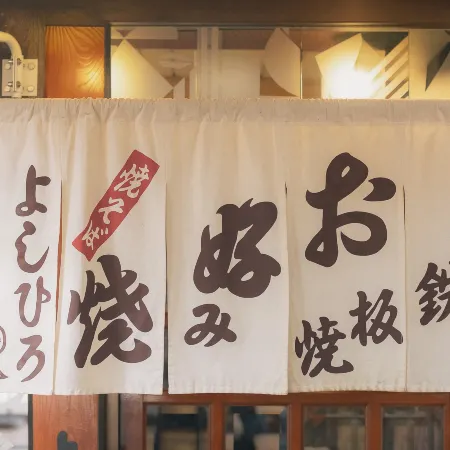 鉄板焼
お好み焼
焼そば
よしひろ